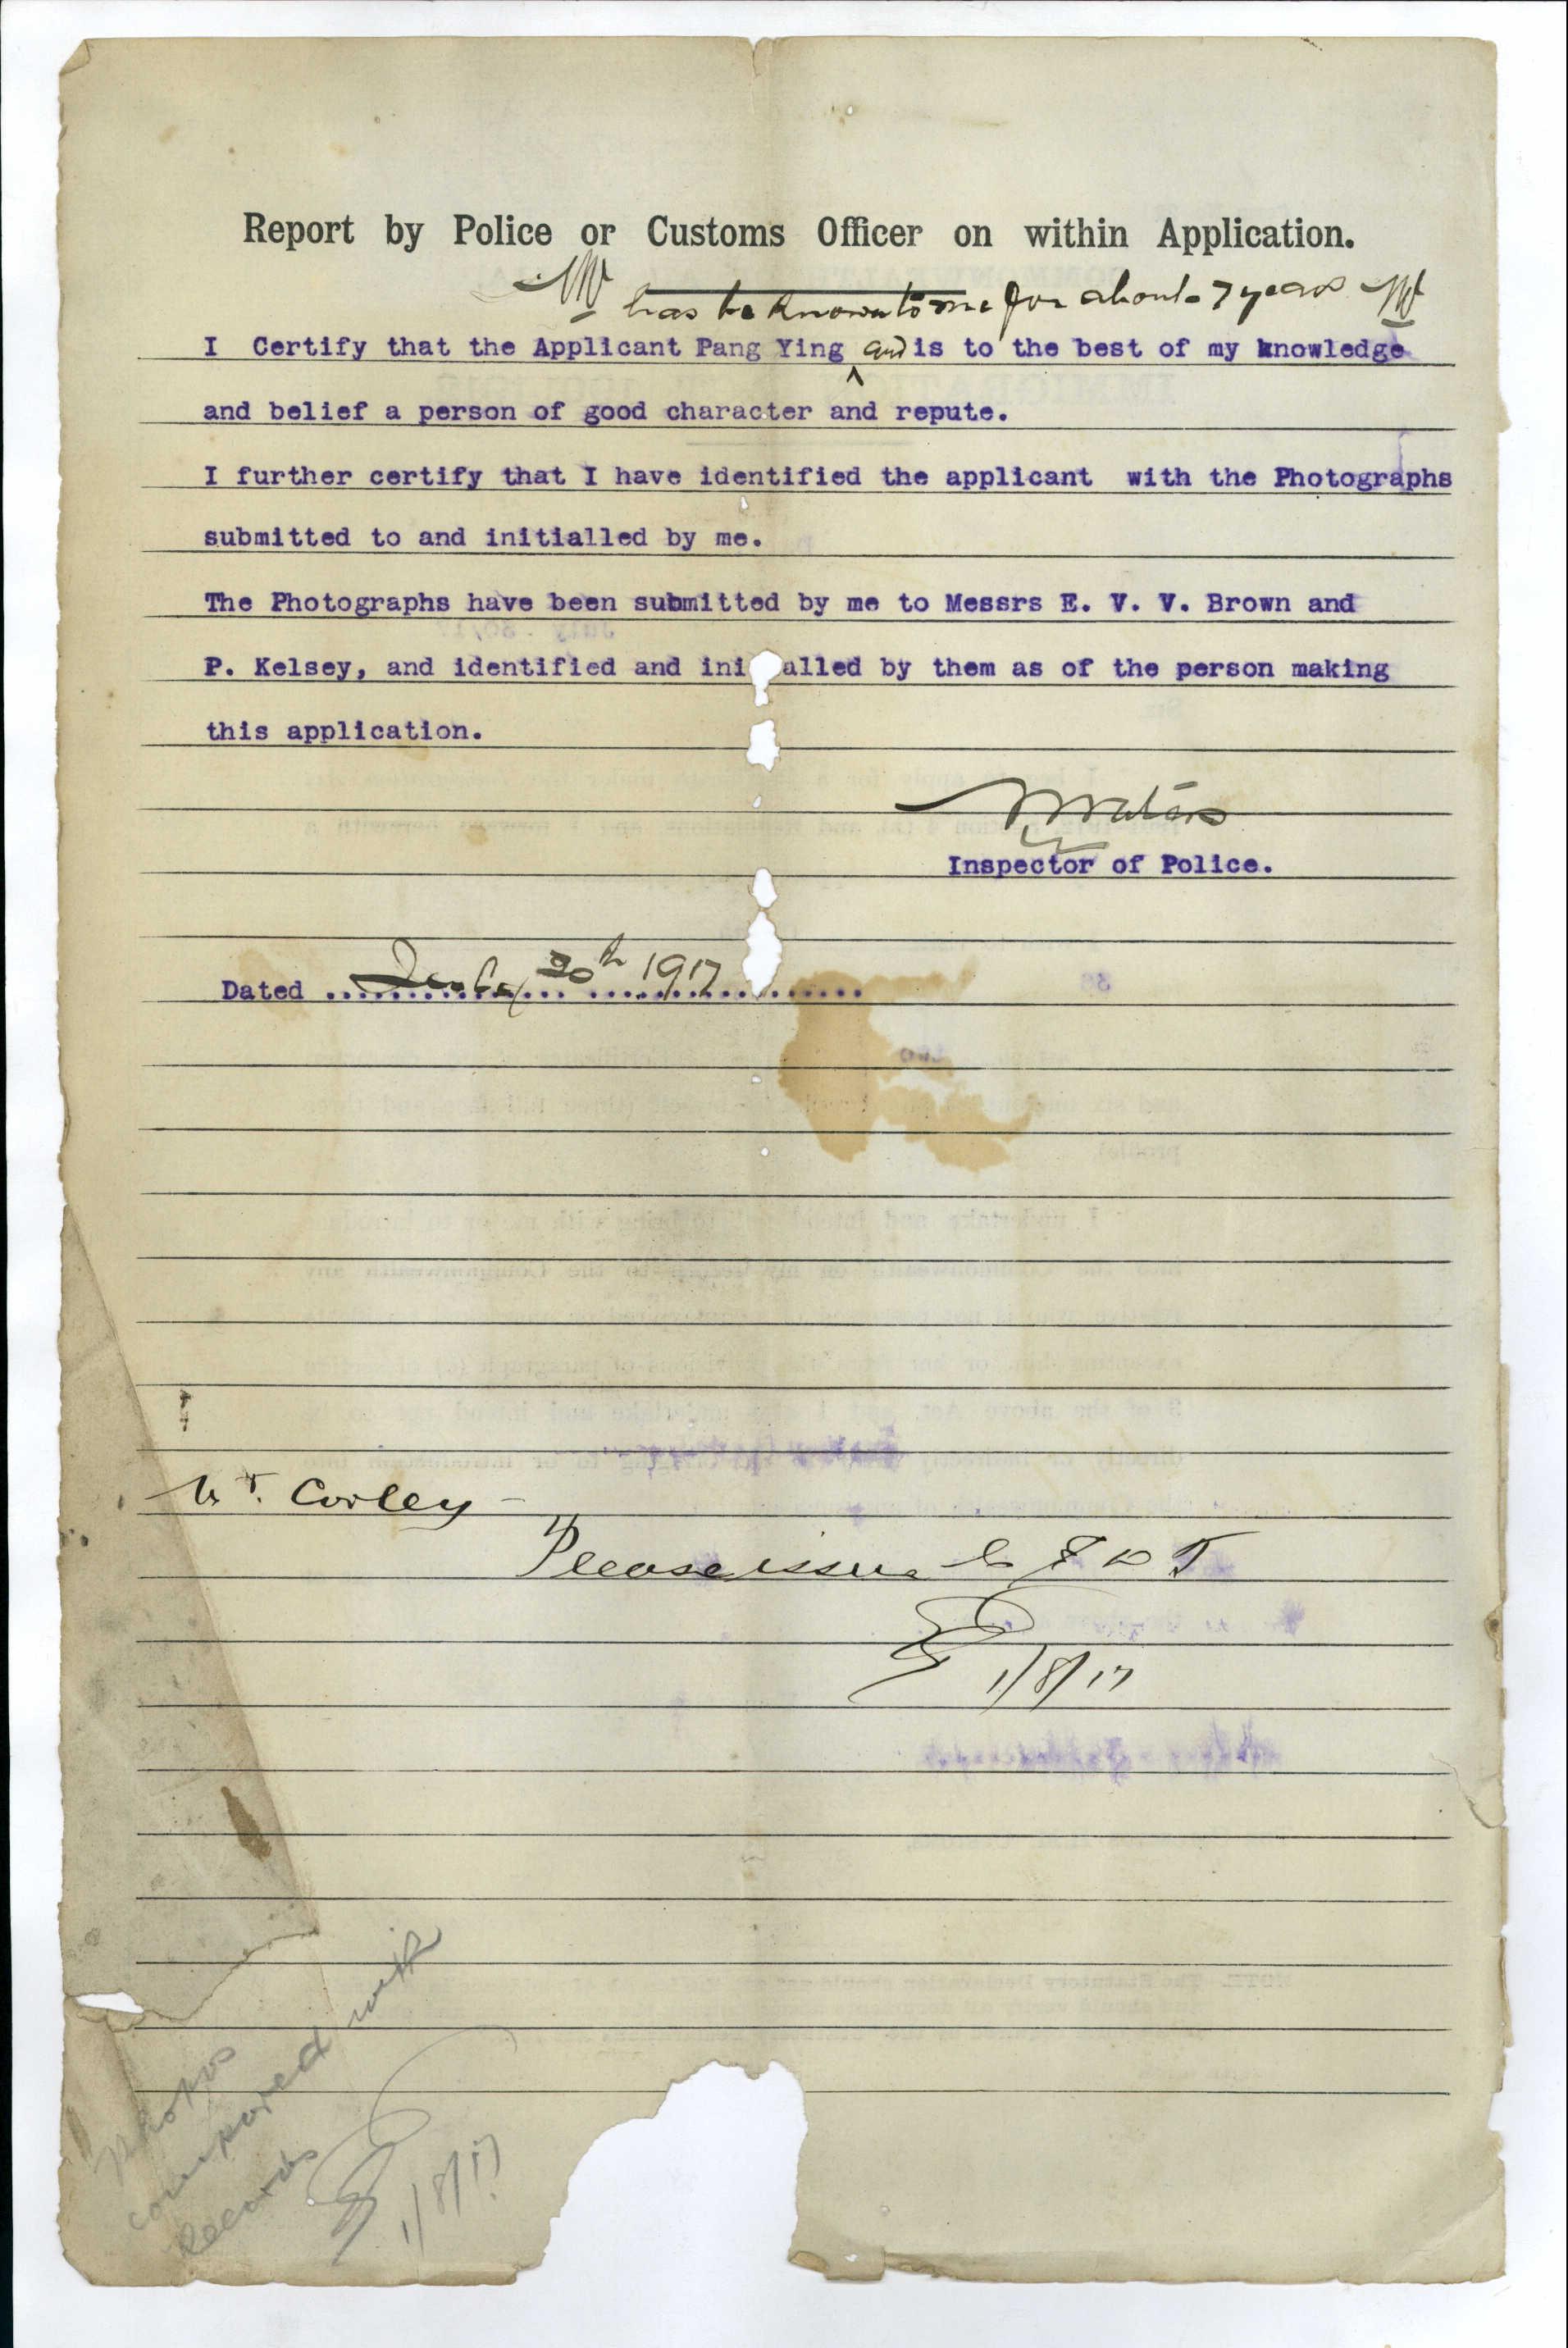 Report by Police or Customs Officer on within Application.
has be known to me for about 7 years
I Certify that the Applicant Pang Ying and is to the best of my knowledge
and belief a person of good character and repute.
I further certify that I have identified the applicant with the Photographs
submitted to and initialled by me.
The Photographs have been submitted by me to Messrs E. V. V. Brown and
P. Kelsey, and identified and ini alled by them as of the person making
this application.
Inspector of Police.
Dated 30th 1917
Mr. Corley
Please issue C E D T
1/8/17
Photos
compared with
Records
1/8/17